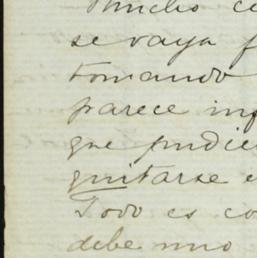 Mucho ce
se vaya f
tomando
parece inf
que pudie
quitarse e
Todo es co
debe uno